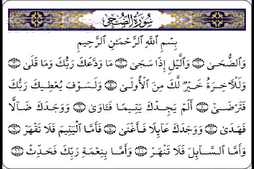 سُورَةُ الضُّحَى
بِسْمِ اللَّهِ الرَّحْمَٰنِ الرَّحِيمِ
وَالضُّحَىٰ ۝ وَاللَّيْلِ إِذَا سَجَىٰ ۝ مَا وَدَّعَكَ رَبُّكَ وَمَا قَلَىٰ ۝
وَلَلْآخِرَةُ خَيْرٌ لَّكَ مِنَ الْأُولَىٰ ۝ وَلَسَوْفَ يُعْطِيكَ رَبُّكَ
فَتَرْضَىٰ ۝ أَلَمْ يَجِدْكَ يَتِيمًا فَآوَىٰ ۝ وَوَجَدَكَ ضَالًّا
فَهَدَىٰ ۝ وَوَجَدَكَ عَائِلًا فَأَغْنَىٰ ۝ فَأَمَّا الْيَتِيمَ فَلَا تَقْهَرْ ۝
وَأَمَّا السَّائِلَ فَلَا تَنْهَرْ ۝ وَأَمَّا بِنِعْمَةِ رَبِّكَ فَحَدِّثْ ۝